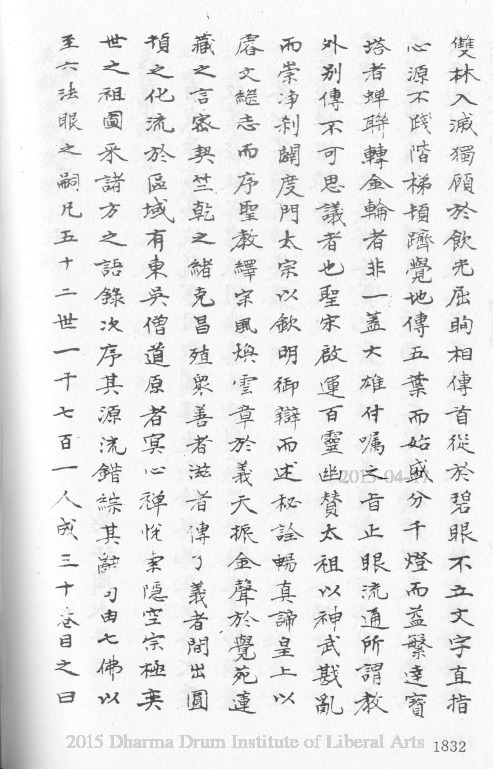 雙林入滅獨顧於飲光屈眴相傳首從於碧眼不立文字直指
心源不踐階梯頓躋覺地傳五葉而始盛分千燈而益繁達寶
塔者蟬聯轉金輪者非一蓋大雄付囑之旨止眼流通所謂教
外別傳不可思議者也聖宋啟運百靈幽贊太祖以神武戡亂
而崇净剎闢度門太宗以欽明御辯而述秘詮暢真諦皇上以
睿文繼志而序聖教繹宗風煥雲章於義天振金聲於覺苑蓮
藏之言密契竺乾之緒克昌殖眾善者滋者傳了義者間出圓
頓之化流於區域有東吳僧道原者冥心禪悅索隱空宗極奕
世之祖圖采諸方之語錄次序其源流錯綜其辭句由七佛以
至六法眼之嗣凡五十二世一千七百一人成三十卷目之曰
2015 Dharma Drum Institute of Liberal Arts
1832